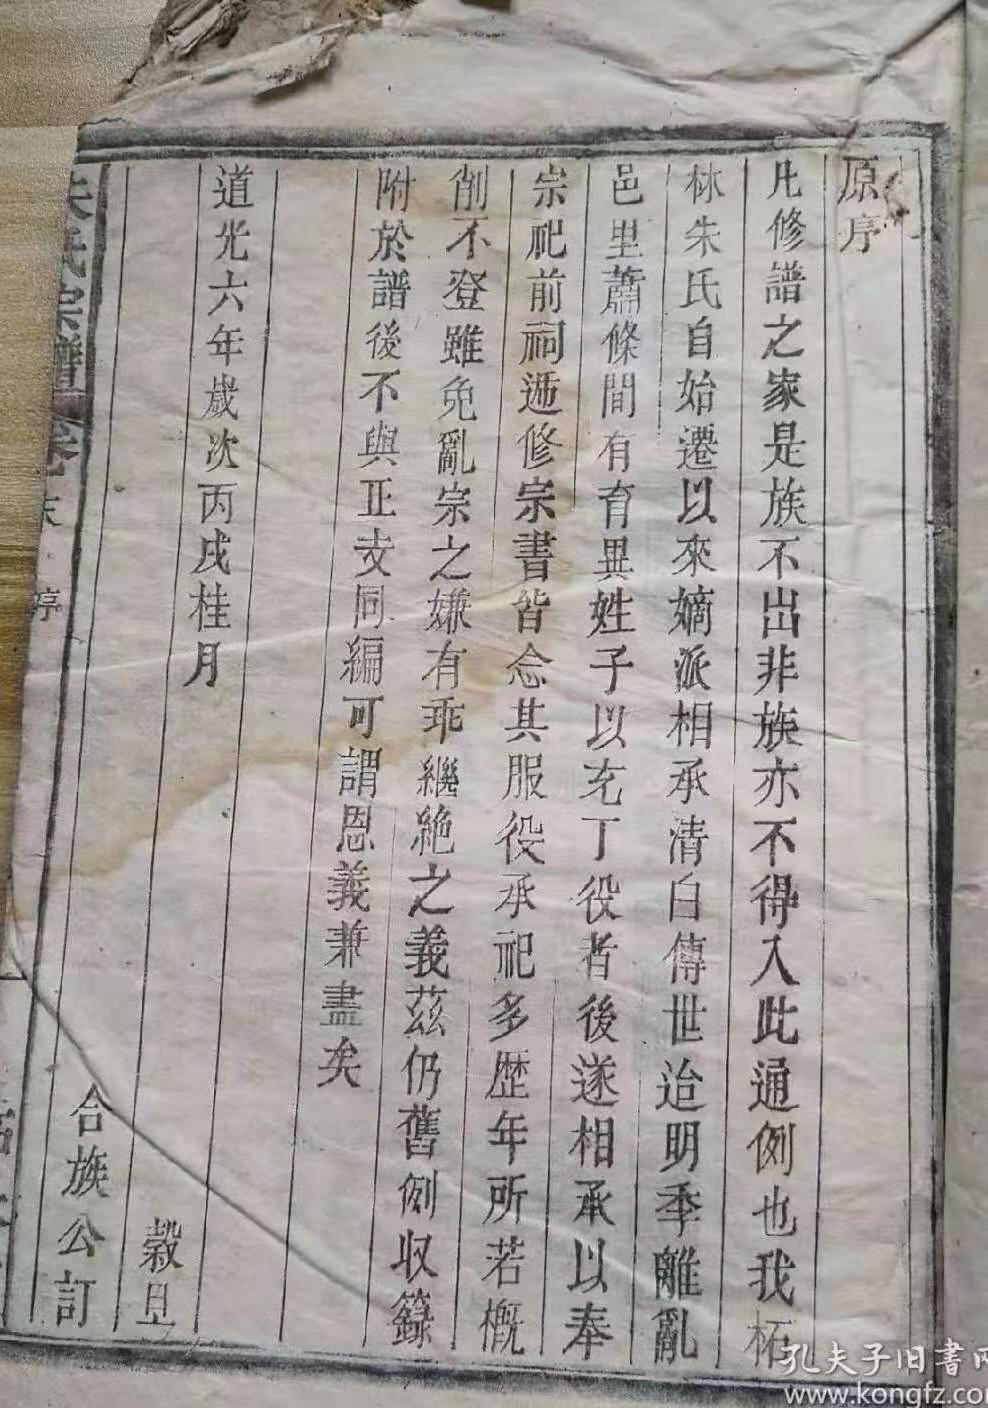 原序
凡修譜之家是族不出非族亦不得入此通例也我柘
林朱氏自始遷以來嫡派相承清白傳世迨明季離亂
邑里蕭條間有育異姓子以充丁役者後遂相承以奉
宗祀前祠遞修宗書皆念其服役承祀多歷年所若概
削不登雖免亂宗之嫌有乖繼絶之義茲仍舊例収錄
附於譜後不與正支同編可謂恩義兼盡矣
道光六年歲次丙戌桂月
穀旦
合族公訂
朱氏宗譜
卷末
序
孔夫子旧書网
www.kongfz.com